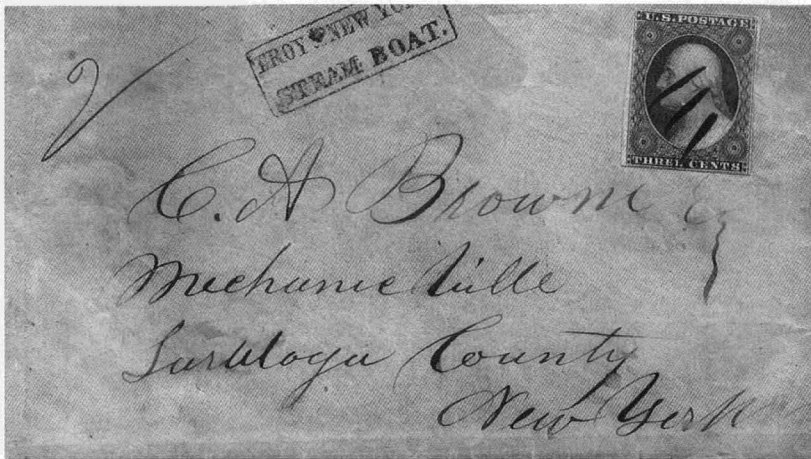 TROY & NEW YOR
STEAM BOAT.
U.S. POSTAGE
THREE CENTS
C. A Browne Esq
Mechanic Ville
Saratoga County
New York